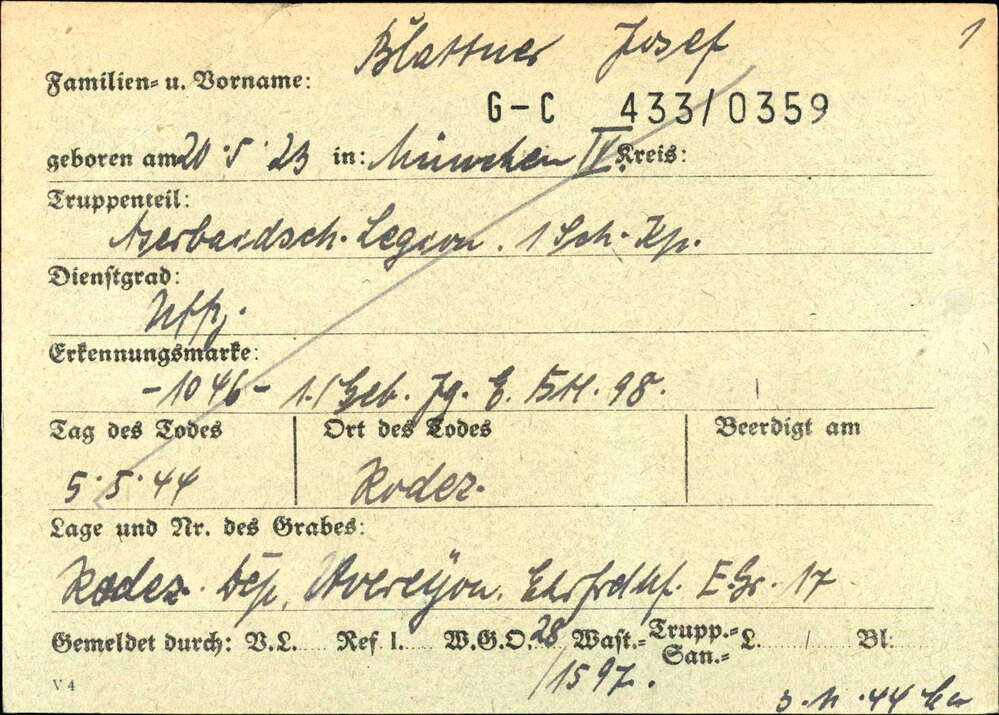 1
Blattner Josef
Familien- u. Vorname:
G-C 433/0359
geboren am 20.5.23 in: München IV Kreis:
Truppenteil:
Aserbaidsch. Legion. 1 Sch. Kp.
Dienstgrad:
Uffz.
Erkennungsmarke:
-1046- 1./Geb. Jg. E. Btl. 98.
Tag des Todes Ort des Todes Beerdigt am
5.5.44 Rodez.
Lage und Nr. des Grabes:
Rodez. Dép. Aveyron. Ehrfrdhf. E.Gr. 17
Gemeldet durch: V.L. Ref I. W.G.O. 28 Wast.- Trupp.- San.- L. / Bl:
/1597.
V 4
3.11.44